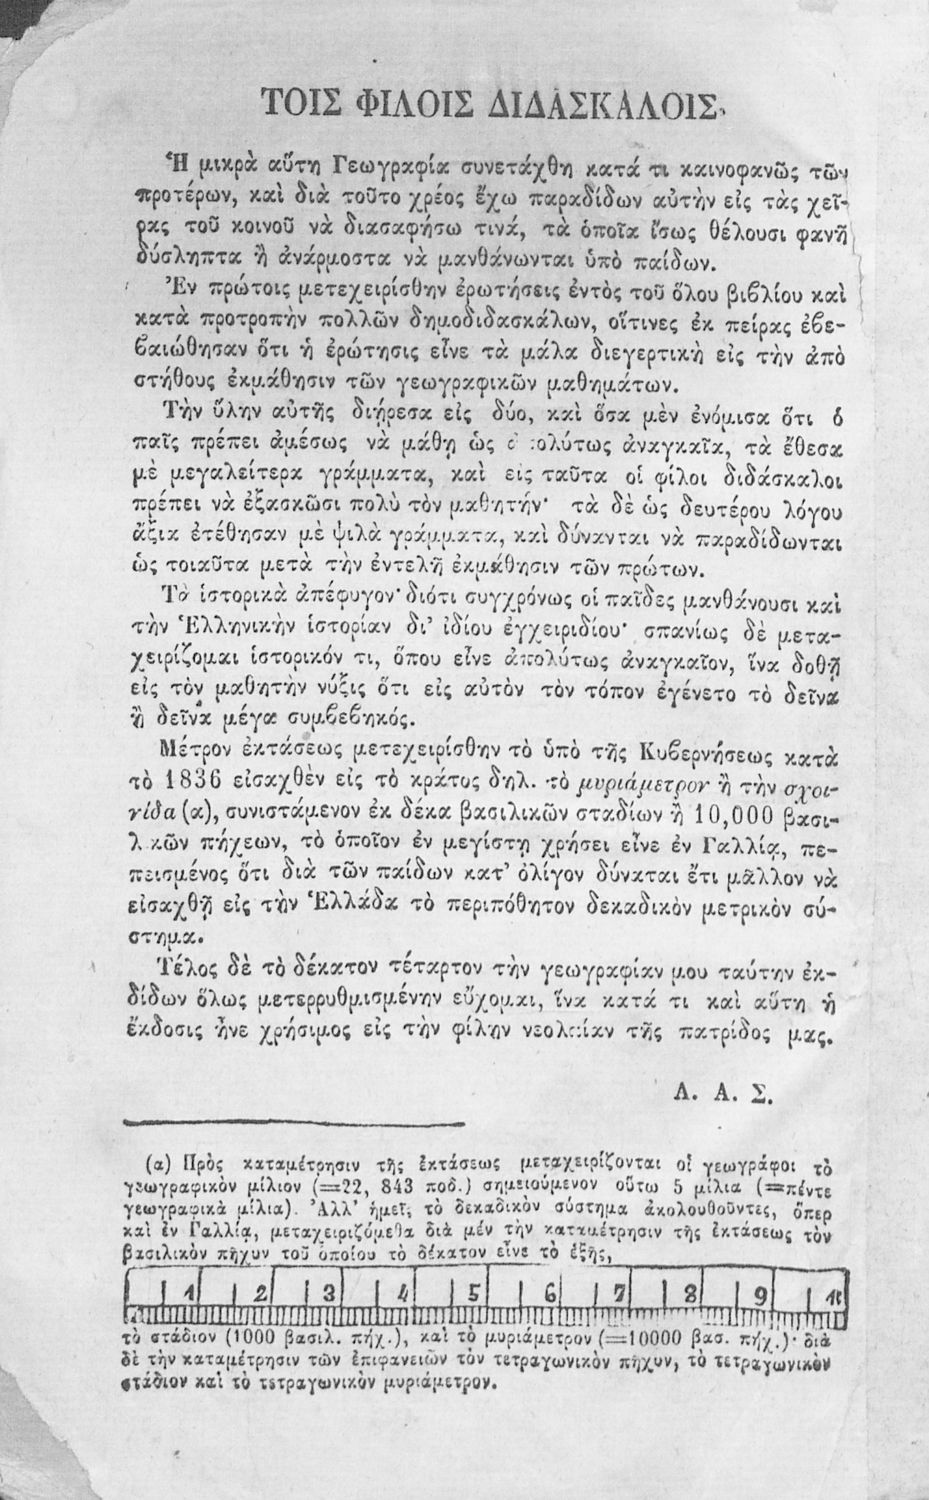 ΤΟΙΣ ΦΙΛΟΙΣ ΔΙΔΑΣΚΑΛΟΙΣ.
Ἡ μικρὰ αὕτη Γεωγραφία συνετάχθη κατά τι καινοφανῶς τῶν
προτέρων, καὶ διὰ τοῦτο χρέος ἔχω παραδίδων αὐτὴν εἰς τὰς χεῖ-
ρας τοῦ κοινοῦ νὰ διασαφήσω τινά, τὰ ὁποῖα ἴσως θέλουσι φανῆ
δύσληπτα ἢ ἀνάρμοστα νὰ μανθάνωνται ὑπὸ παίδων.
Ἐν πρώτοις μετεχειρίσθην ἐρωτήσεις ἐντὸς τοῦ ὅλου βιϐλίου καὶ
κατὰ προτροπὴν πολλῶν δημοδιδασκάλων, οἵτινες ἐκ πείρας ἐϐε-
ϐαιώθησαν ὅτι ἡ ἐρώτησις εἶνε τὰ μάλα διεγερτικὴ εἰς τὴν ἀπὸ
στήθους ἐκμάθησιν τῶν γεωγραφικῶν μαθημάτων.
Τὴν ὕλην αὐτῆς διῄρεσα εἰς δύο, καὶ ὅσα μὲν ἐνόμισα ὅτι ὁ
παῖς πρέπει ἀμέσως νὰ μάθῃ ὡς ἀπολύτως ἀναγκαῖα, τὰ ἔθεσα
μὲ μεγαλείτερα γράμματα, καὶ εἰς ταῦτα οἱ φίλοι διδάσκαλοι
πρέπει νὰ ἐξασκῶσι πολὺ τὸν μαθητήν· τὰ δὲ ὡς δευτέρου λόγου
ἄξια ἐτέθησαν μὲ ψιλὰ γράμματα, καὶ δύνανται νὰ παραδίδωνται
ὡς τοιαῦτα μετὰ τὴν ἐντελῆ ἐκμάθησιν τῶν πρώτων.
Τὰ ἱστορικὰ ἀπέφυγον· διότι συγχρόνως οἱ παῖδες μανθάνουσι καὶ
τὴν Ἑλληνικὴν ἱστορίαν δι' ἰδίου ἐγχειριδίου· σπανίως δὲ μετα-
χειρίζομαι ἱστορικόν τι, ὅπου εἶνε ἀπολύτως ἀναγκαῖον, ἵνα δοθῇ
εἰς τὸν μαθητὴν νύξις ὅτι εἰς αὐτὸν τὸν τόπον ἐγένετο τὸ δεῖνα
ἢ δεῖνα μέγα συμϐεϐηκός.
Μέτρον ἐκτάσεως μετεχειρίσθην τὸ ὑπὸ τῆς Κυϐερνήσεως κατὰ
τὸ 1836 εἰσαχθὲν εἰς τὸ κράτος δηλ. τὸ μυριάμετρον ἢ τὴν σχοι-
νίδα (α), συνιστάμενον ἐκ δέκα βασιλικῶν σταδίων ἢ 10,000 βασι-
λικῶν πήχεων, τὸ ὁποῖον ἐν μεγίστῃ χρήσει εἶνε ἐν Γαλλίᾳ, πε-
πεισμένος ὅτι διὰ τῶν παίδων κατ' ὀλίγον δύναται ἔτι μᾶλλον νὰ
εἰσαχθῇ εἰς τὴν Ἑλλάδα τὸ περιπόθητον δεκαδικὸν μετρικὸν σύ-
στημα.
Τέλος δὲ τὸ δέκατον τέταρτον τὴν γεωγραφίαν μου ταύτην ἐκ-
δίδων ὅλως μετερρυθμισμένην εὔχομαι, ἵνα κατά τι καὶ αὕτη ἡ
ἔκδοσις ἦνε χρήσιμος εἰς τὴν φίλην νεολαίαν τῆς πατρίδος μας.
Λ. Α. Σ.
(α) Πρὸς καταμέτρησιν τῆς ἐκτάσεως μεταχειρίζονται οἱ γεωγράφοι τὸ
γεωγραφικὸν μίλιον (=22, 843 ποδ.) σημειούμενον οὕτω 5 μίλια (=πέντε
γεωγραφικὰ μίλια). Ἀλλ' ἡμεῖς τὸ δεκαδικὸν σύστημα ἀκολουθοῦντες, ὅπερ
καὶ ἐν Γαλλίᾳ, μεταχειριζόμεθα διὰ μέν τὴν καταμέτρησιν τῆς ἐκτάσεως τὸν
βασιλικὸν πῆχυν τοῦ ὁποίου τὸ δέκατον εἶνε τὸ ἑξῆς,
1 2 3 4 5 6 7 8 9 10
τὸ στάδιον (1000 βασιλ. πήχ.), καὶ τὸ μυριάμετρον (=10000 βασ. πήχ.)· διὰ
δὲ τὴν καταμέτρησιν τῶν ἐπιφανειῶν τὸν τετραγωνικὸν πῆχυν, τὸ τετραγωνικὸν
στάδιον καὶ τὸ τετραγωνικὸν μυριάμετρον.